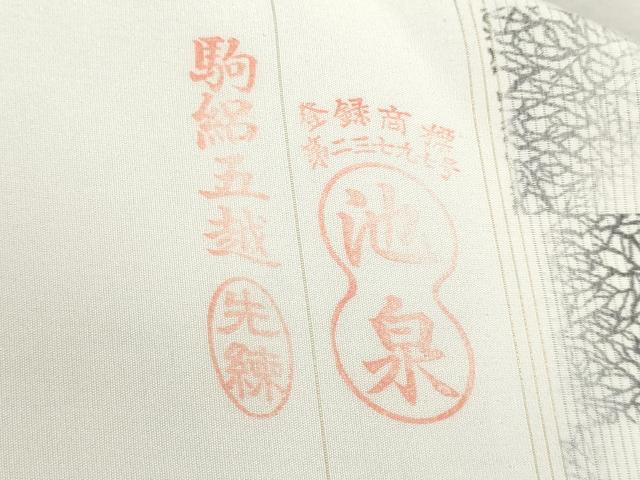 登録商標
第二三七九七号
池泉
駒絽五越
先練